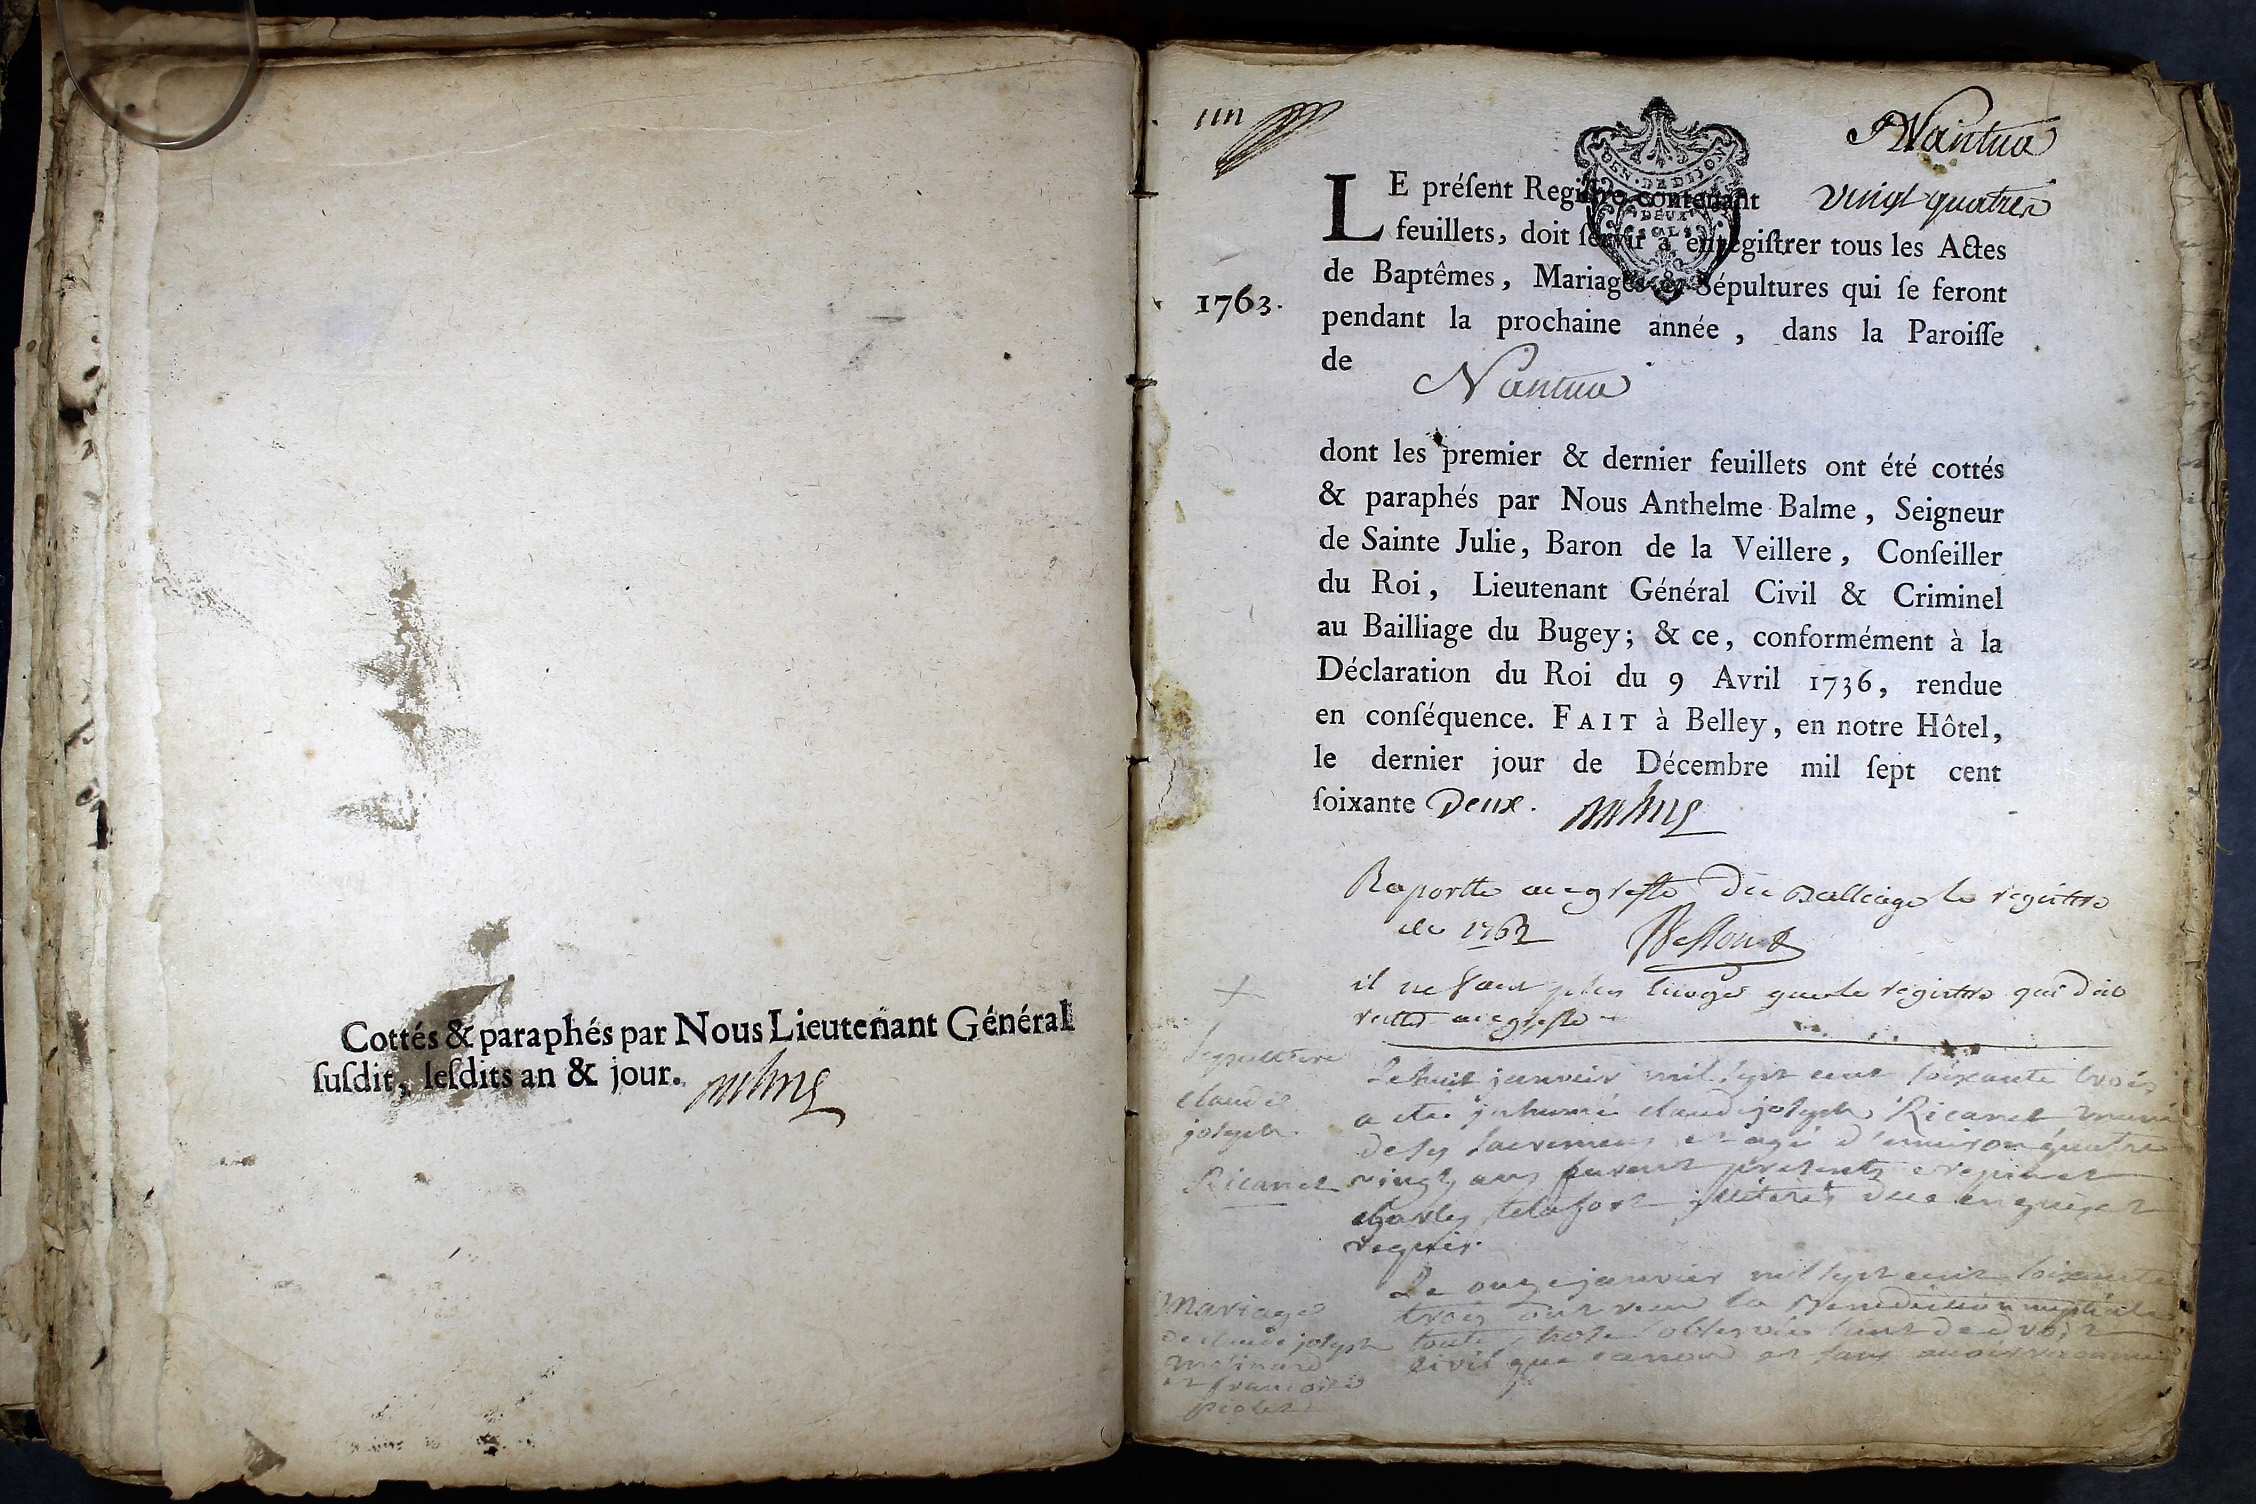 Cottés & paraphés par Nous Lieutenant Général
ſuſdit, leſdits an & jour.
Nantua
GEN. DE DIJON
DEUX
SOLS
LE préſent Regiſtre contenant vingt quatre
feuillets, doit ſervir à enregiſtrer tous les Actes
de Baptêmes, Mariages & Sépultures qui ſe feront
1763.
pendant la prochaine année, dans la Paroiſſe
de
Nantua
dont les premier & dernier feuillets ont été cottés
& paraphés par Nous Anthelme Balme, Seigneur
de Sainte Julie, Baron de la Veillere, Conſeiller
du Roi, Lieutenant Général Civil & Criminel
au Bailliage du Bugey; & ce, conformément à la
Déclaration du Roi du 9 Avril 1736, rendue
en conſéquence. FAIT à Belley, en notre Hôtel,
le dernier jour de Décembre mil ſept cent
ſoixante Deux.
Raportte au greffe du Balliage le registre
de 1762
il ne faut plus que le registre qui doit
rester au greffe
Sepulture
claude
joseph
Ricanet
Le huit janvier mil sept cent soixante trois
a été inhumé claude joseph Ricanet muni
de ses sacremens et agé d'environ quatre
vingt ans furent presents
charles illiterés de ce enquis et
requis.
Mariage
de claude joseph
molinard
et francoise
piolet
Le onze janvier mil sept cent soixante
trois ont recu la Benediction nuptiale
toute chose observée tant de droit
civil que canon et sans avoir reconnu